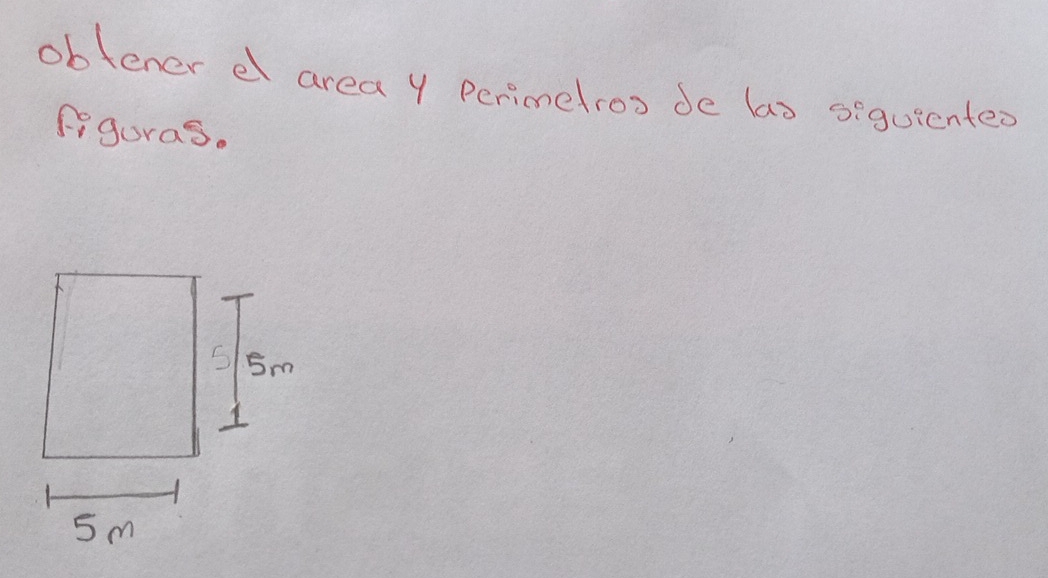 obtener el area y perimetros de las siguientes
figuras.
5 5m
5m